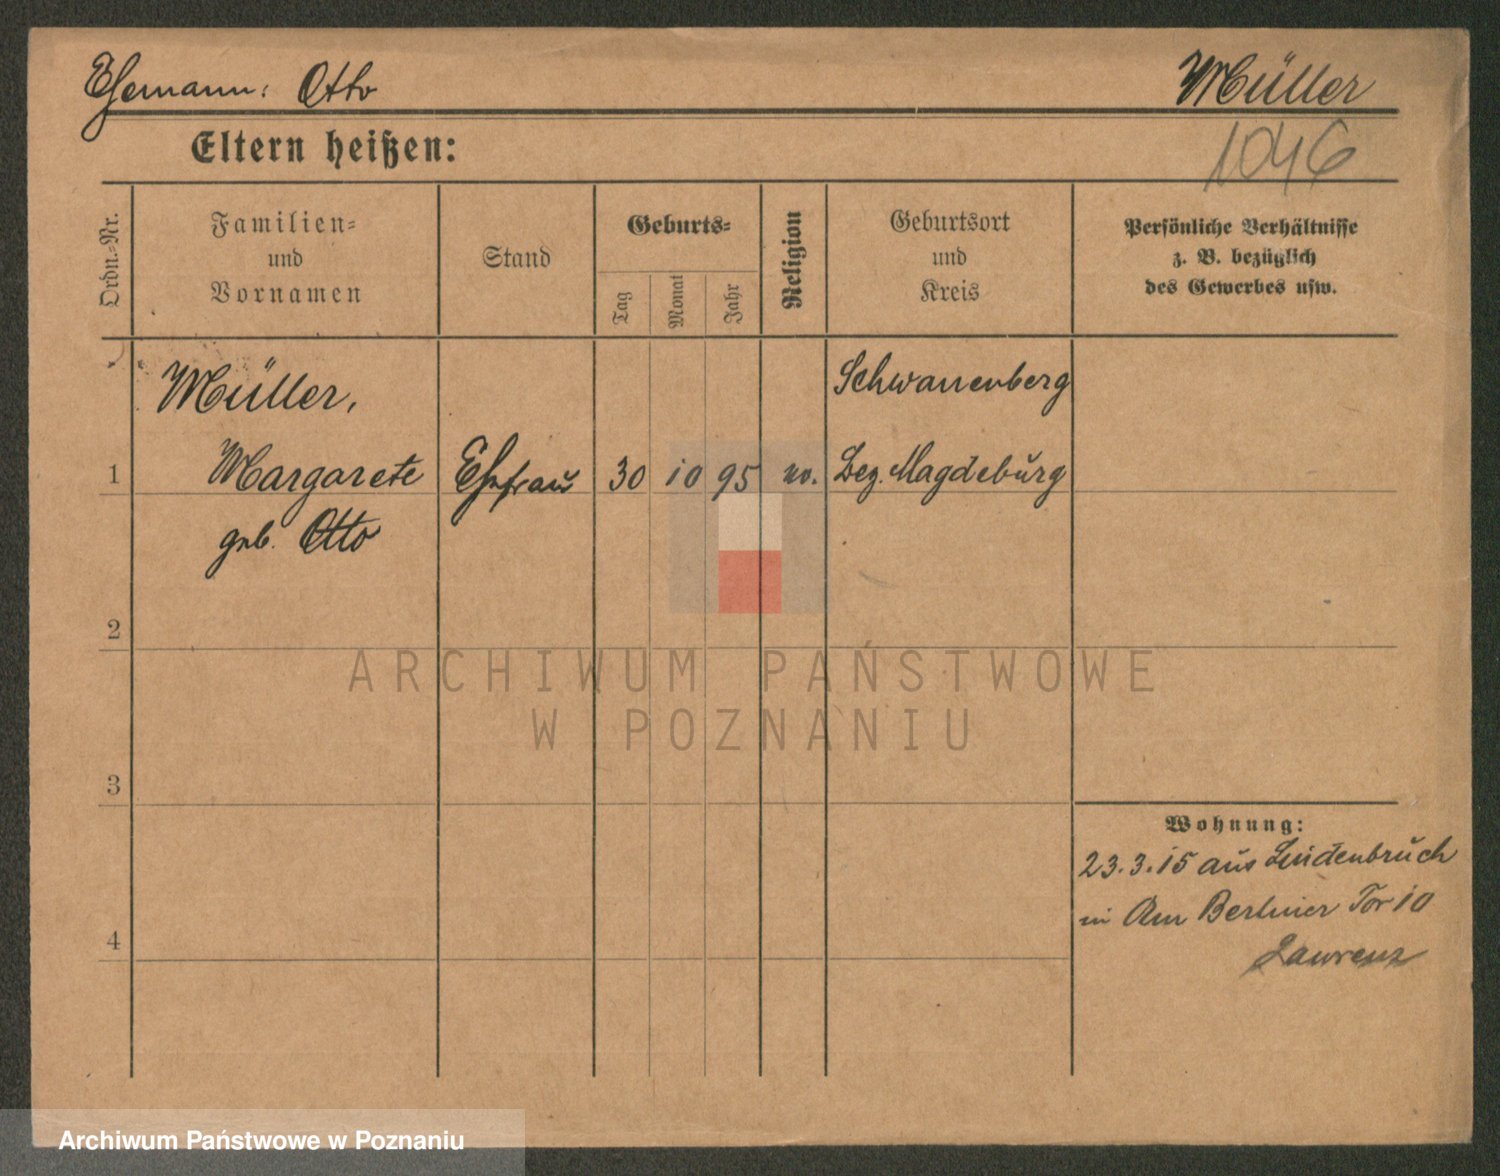 Ehemann: Otto
Müller
1046
Eltern heißen:
Ordn.-Nr.
Familien-
und
Vornamen
Stand
Geburts-
Tag
Monat
Jahr
Religion
Geburtsort
und
Kreis
Persönliche Verhältnisse
z. B. bezüglich
des Gewerbes usw.
Müller,
Schwanenberg
1 Margarete Ehefrau 30 10 95 ev. Bez. Magdeburg
geb. Otto
2
3
4
Wohnung:
23.3.15 aus Lindenbruch
in Am Berliner Tor 10
Lawrenz
ARCHIWUM PAŃSTWOWE
W POZNANIU
Archiwum Państwowe w Poznaniu